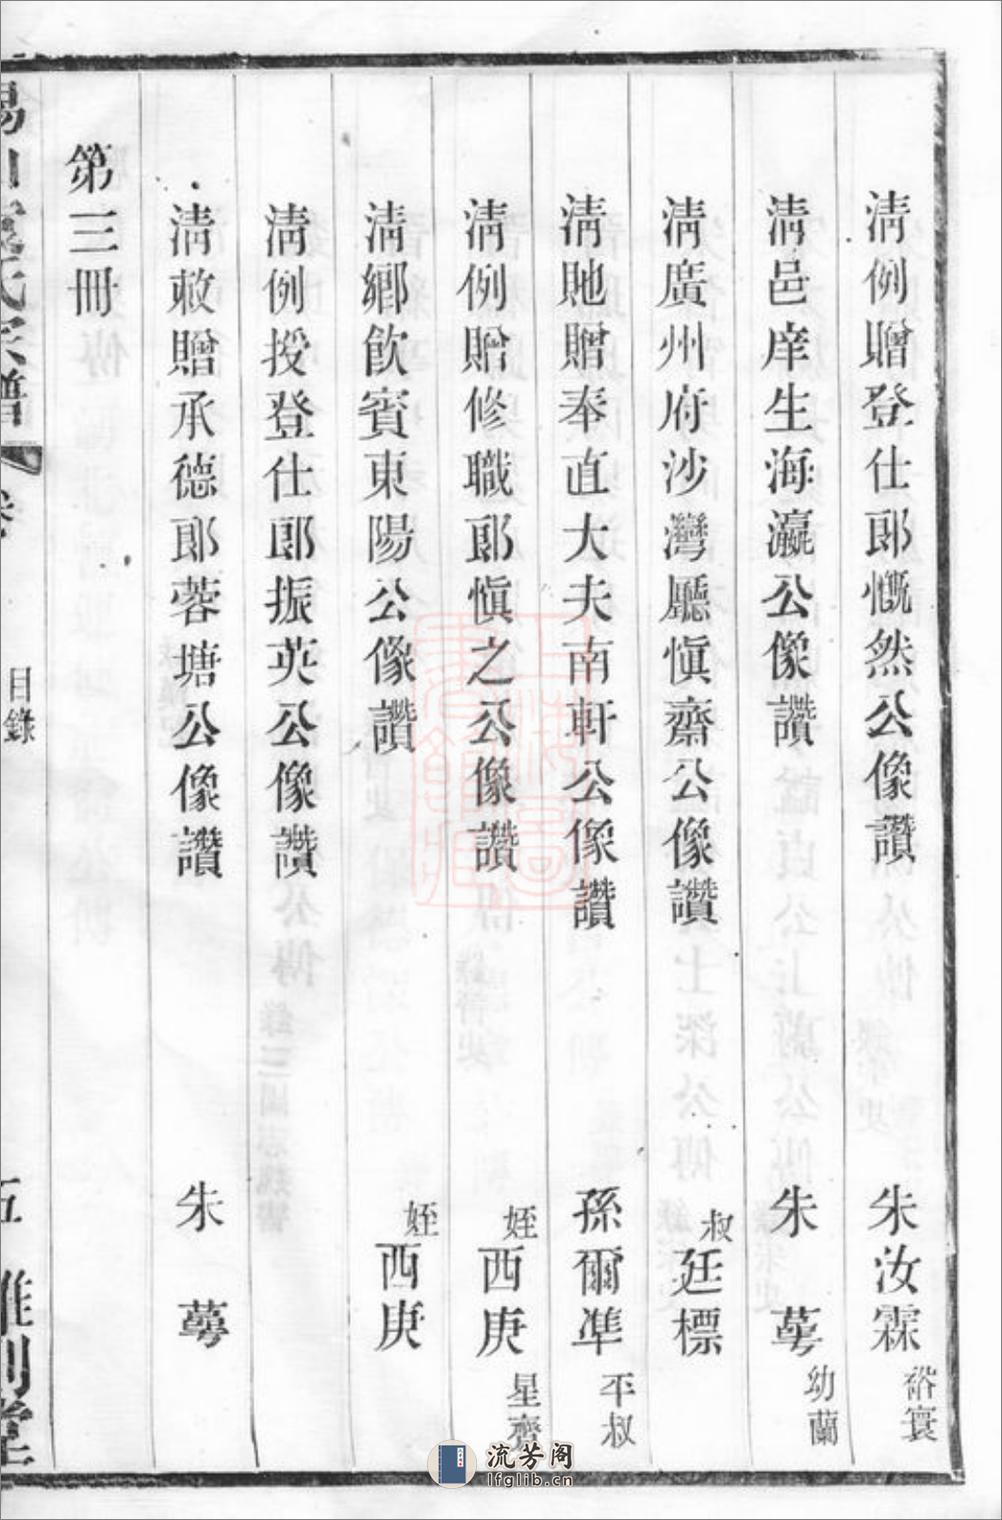 清例贈登仕郎慨然公像讚 朱汝霖 裕寰
清邑庠生海瀛公像讚 朱蕚 幼蘭
清廣州府沙灣廳愼齋公像讚 叔廷標
清貤贈奉直大夫南軒公像讚 孫爾凖 平叔
清例贈修職郎愼之公像讚 姪西庚 星齊
清鄉飮賓東陽公像讚 姪西庚
清例授登仕郎振英公像讚
清敕贈承德郎蓉塘公像讚 朱蕚
第三冊
氏宗譜 目錄 五
流芳阁
lfglib.cn